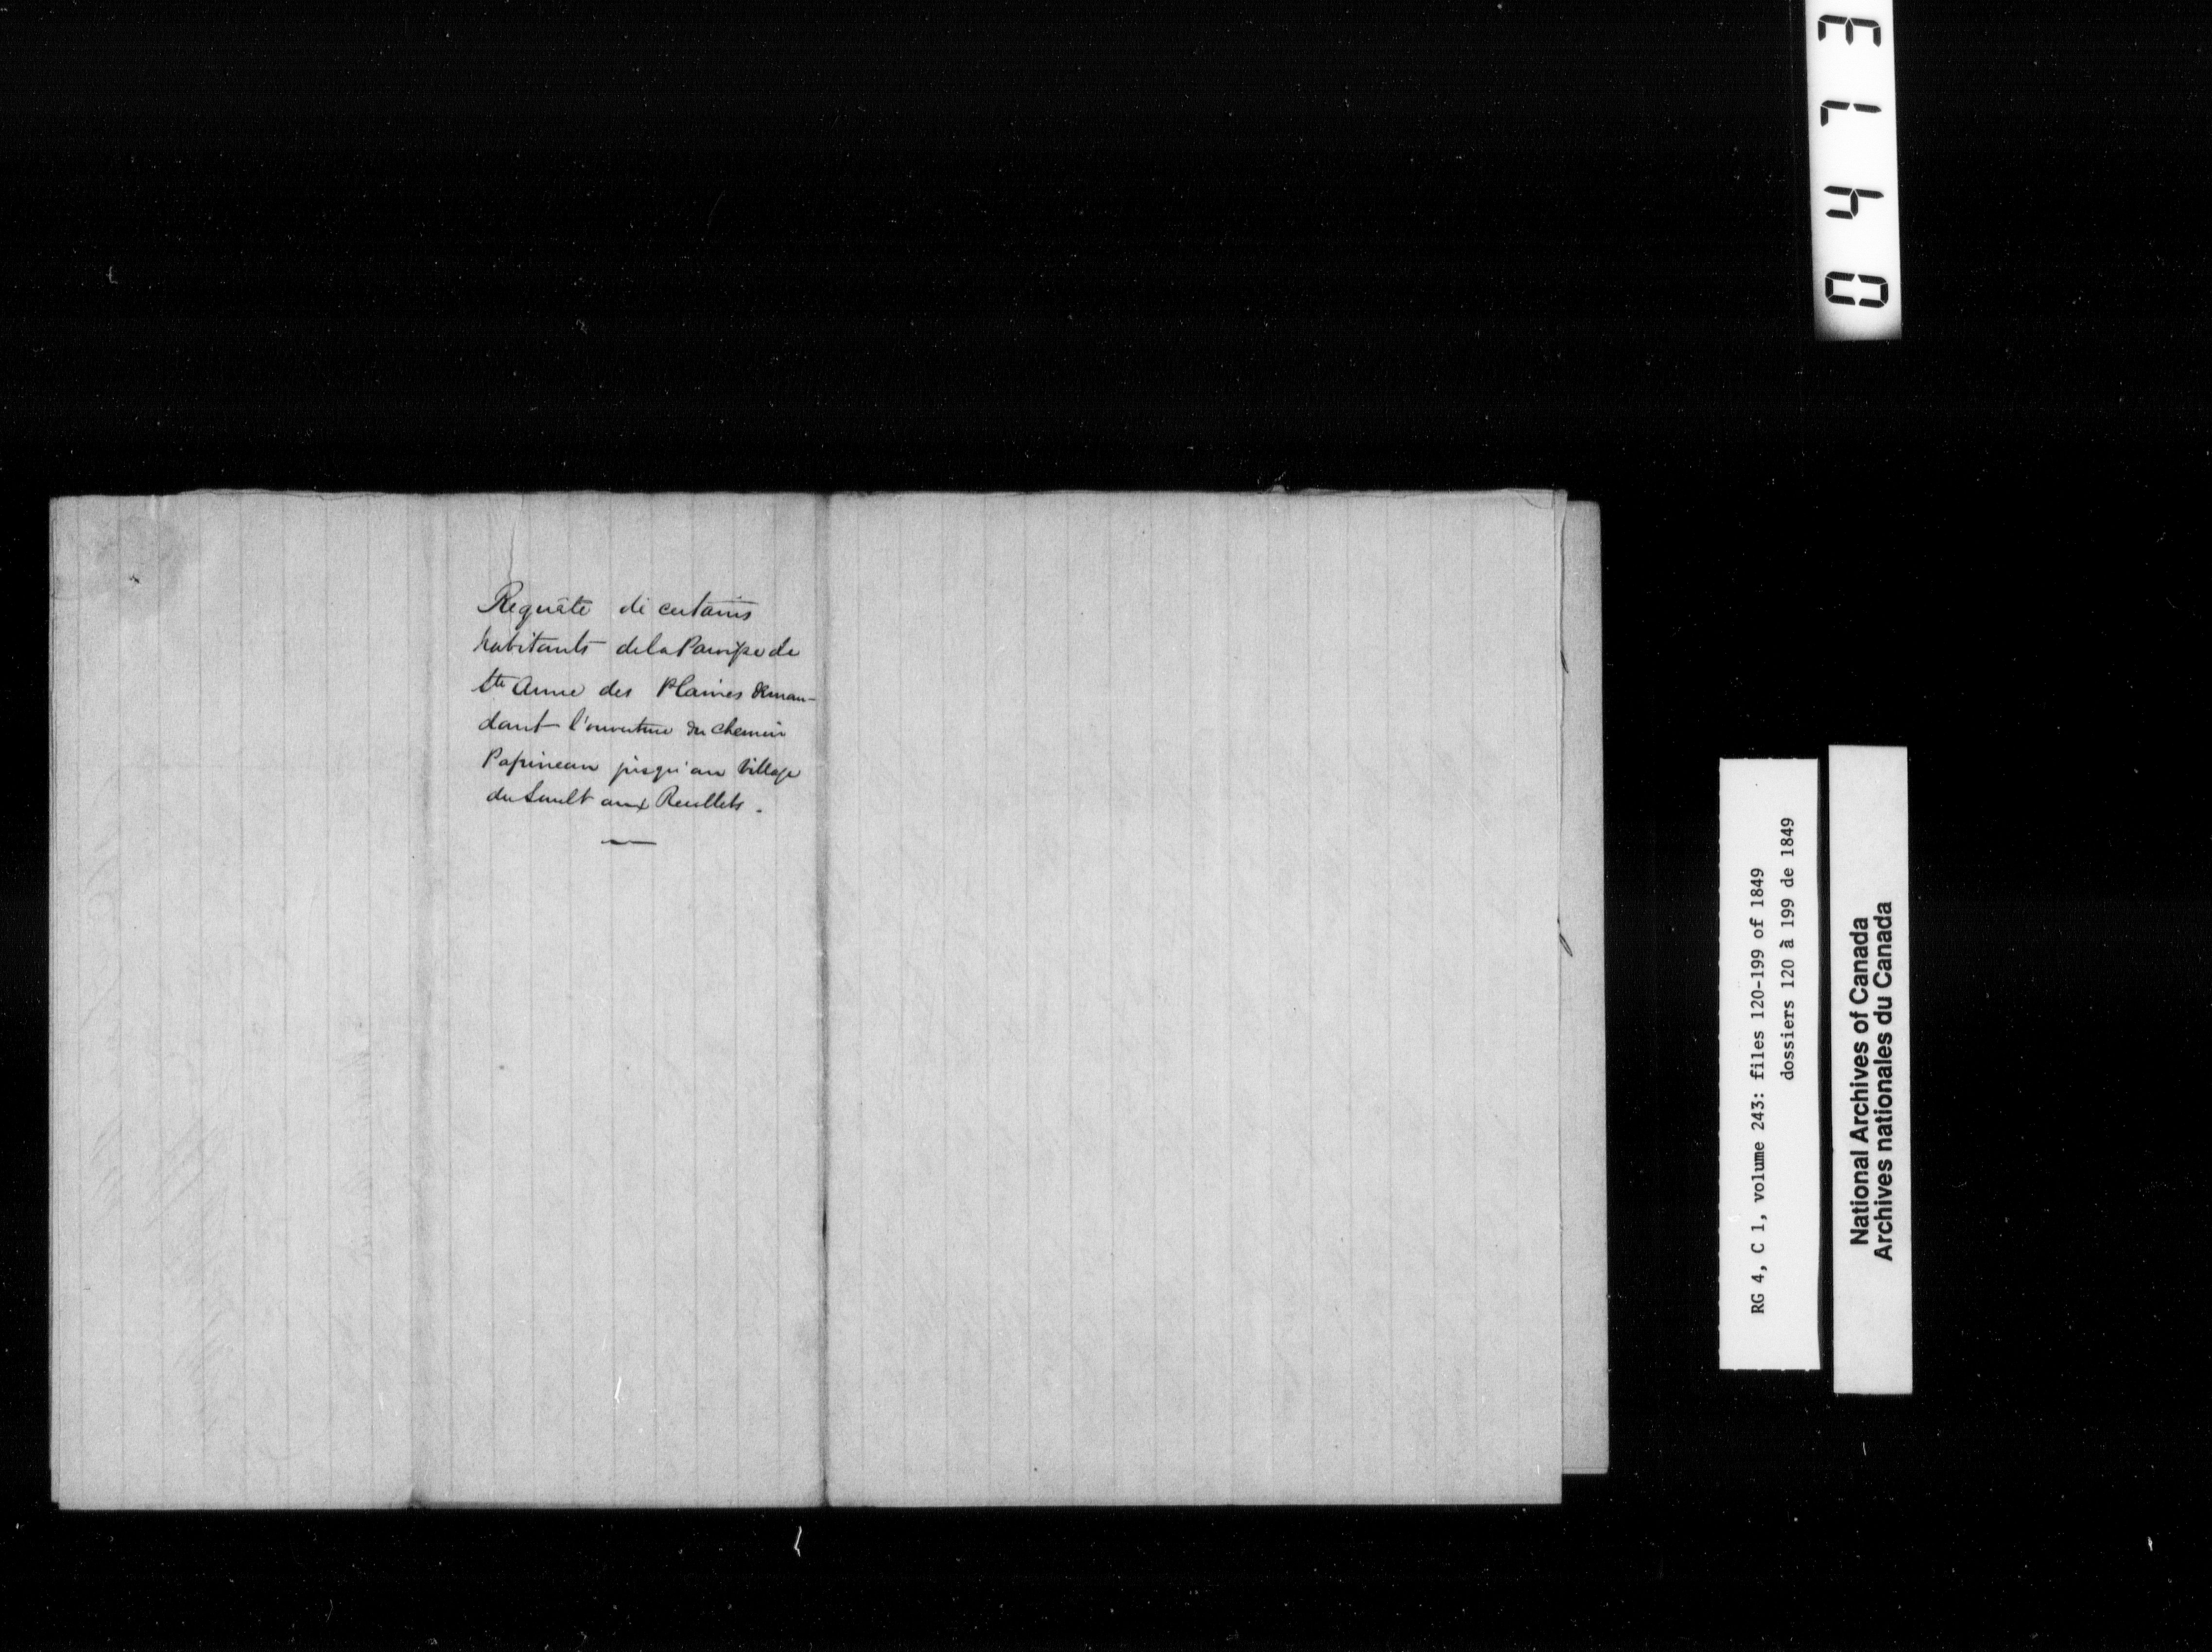 Requête de certains
habitants de la Paroisse de
Ste Anne des Plaines deman-
dant l'ouverture du chemin
Papineau jusqu'au Village
du Sault aux Recollets.
RG 4, C 1, volume 243: files 120-199 of 1849
dossiers 120 à 199 de 1849
National Archives of Canada
Archives nationales du Canada